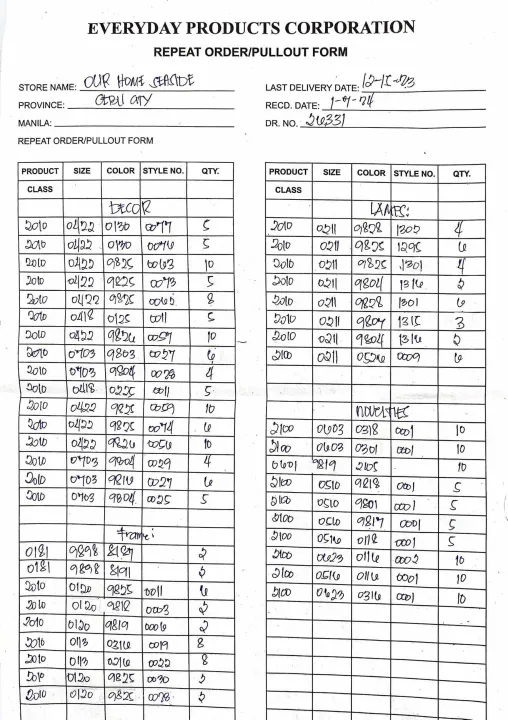 EVERYDAY PRODUCTS CORPORATION
REPEAT ORDER/PULLOUT FORM
STORE NAME: OUR HOME SEASIDE
PROVINCE: CEBU CITY
MANILA:
REPEAT ORDER/PULLOUT FORM
LAST DELIVERY DATE: 12-15-23
RECD. DATE: 1-9-24
DR. NO. 26331
PRODUCT CLASS SIZE COLOR STYLE NO. QTY.
DECOR
2010 0422 0130 0077 5
2010 0422 0130 0076 5
2010 0422 9825 0063 10
2010 0422 9825 0073 5
2010 0422 9825 0065 8
2010 0418 0125 0011 5
2010 0422 9826 0057 10
2010 0703 9803 0027 6
2010 0703 9804 0028 4
2010 0418 0225 0011 5
2010 0422 9825 0059 10
2010 0422 9825 0074 6
2010 0422 9826 0056 10
2010 0703 9804 0029 4
2010 0703 9816 0027 6
2010 0703 9804 0025 5
Frame:
0181 9898 8189 2
0181 9898 8191 2
2010 0120 9825 0011 6
2010 0120 9812 0003 2
2010 0120 9819 0006 2
2010 0113 0316 0019 8
2010 0113 0216 0022 8
2010 0120 9825 0030 2
2010 0120 9825 0028 2
PRODUCT CLASS SIZE COLOR STYLE NO. QTY.
LAMPS:
2010 0211 9828 1302 4
2010 0211 9825 1295 6
2010 0211 9825 1301 4
2010 0211 9804 1316 2
2010 0211 9828 1301 6
2010 0211 9804 1315 3
2010 0211 9804 1316 2
2100 0211 0526 0009 6
NOVELTIES
2100 0603 0318 0001 10
2100 0603 0301 0001 10
0601 9819 2105 10
2100 0510 9818 0001 5
2100 0510 9801 0001 5
2100 0510 9817 0001 5
2100 0516 0118 0001 5
2100 0623 0116 0002 10
2100 0516 0116 0001 10
2100 0623 0316 0001 10